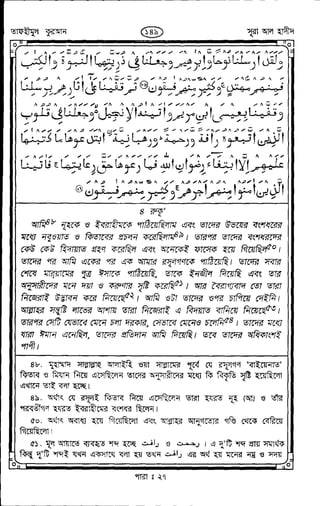 তাফহীমুল কুরআন
১৪৯
সূরা আল হাদীদ
وَلَقَدْ أَرْسَلْنَا نُوحًا وَإِبْرَٰهِيمَ وَجَعَلْنَا فِي ذُرِّيَّتِهِمَا النُّبُوَّةَ وَالْكِتَٰبَ
فَمِنْهُمْ مُّهْتَدٍ ۚ وَكَثِيرٌ مِّنْهُمْ فَٰسِقُونَ ۝ ثُمَّ قَفَّيْنَا عَلَىٰ آثَارِهِمْ بِرُسُلِنَا
وَقَفَّيْنَا بِعِيسَى ابْنِ مَرْيَمَ وَآتَيْنَٰهُ الْإِنْجِيلَ ۙ وَجَعَلْنَا فِي قُلُوبِ
الَّذِينَ اتَّبَعُوهُ رَأْفَةً وَرَحْمَةً ۚ وَرَهْبَانِيَّةَ ۨابْتَدَعُوهَا مَا كَتَبْنَٰهَا
عَلَيْهِمْ إِلَّا ابْتِغَاءَ رِضْوَانِ اللَّهِ فَمَا رَعَوْهَا حَقَّ رِعَايَتِهَا ۚ فَآتَيْنَا
الَّذِينَ آمَنُوا مِنْهُمْ أَجْرَهُمْ ۚ وَكَثِيرٌ مِّنْهُمْ فَٰسِقُونَ ۝
৪ রুকূ'
আমি নূহকে ও ইবরাহীমকে পাঠিয়েছিলাম এবং তাদের উভয়ের বংশধরের
মধ্যে নবুওয়াত ও কিতাবের প্রচলন করেছিলাম। তারপর তাদের বংশধরদের
কেউ কেউ হিদায়াত গ্রহণ করেছিল এবং অনেকেই ফাসেক হয়ে গিয়েছিল৫০।
তাদের পর আমি একের পর এক আমার রসূলগণকে পাঠিয়েছি। তাদের সবার
শেষে মারয়ামের পুত্র ঈসাকে পাঠিয়েছি, তাকে ইনজীল দিয়েছি এবং তার
অনুসারীদের মনে দয়া ও করুণার সৃষ্টি করেছি৫১। আর বৈরাগ্যবাদ তো তারা
নিজেরাই উদ্ভাবন করে নিয়েছে। আমি ওটা তাদের ওপর চাপিয়ে দেইনি।
আল্লাহর সন্তুষ্টি লাভের আশায় তারা নিজেরাই এ বিদয়াত বানিয়ে নিয়েছে।
তারপর সেটি যেভাবে মেনে চলা দরকার, সেভাবে মেনেও চলেনি। তাদের মধ্যে
যারা ঈমান এনেছিল, তাদের প্রতিদান আমি দিয়েছি। তবে তাদের অধিকাংশই
পাপী।
৪৮. মুহাম্মাদ সাল্লাল্লাহু আলাইহি ওয়া সাল্লামের পূর্বে যে রসূলগণ 'বাইয়েনাত'
কিতাব ও মিযান নিয়ে এসেছিলেন তাদের অনুসারীদের মধ্যে কি বিকৃতি সৃষ্টি হয়েছিলো
এখানে তাই বলা হচ্ছে।
৪৯. অর্থাৎ যে রসূলই কিতাব নিয়ে এসেছিলেন তারা হযরত নূহ (আ) ও তাঁর
পরবর্তীগণ হযরত ইবরাহীমের বংশধর ছিলেন।
৫০. অর্থাৎ অবাধ্য হয়ে গিয়েছিলো এবং আল্লাহর আনুগত্যের গণ্ডি থেকে বেরিয়ে
গিয়েছিলো।
৫১. মূল আয়াতে ব্যবহৃত শব্দ হচ্ছে رأفت ও رحمت। এ দু'টি শব্দ প্রায় সমার্থক
কিন্তু দু'টি শব্দই যখন একসাথে বলা হয় তখন رأفت এর অর্থ হয় মনের নম্র ও সদয়
পারা ঃ ২৭